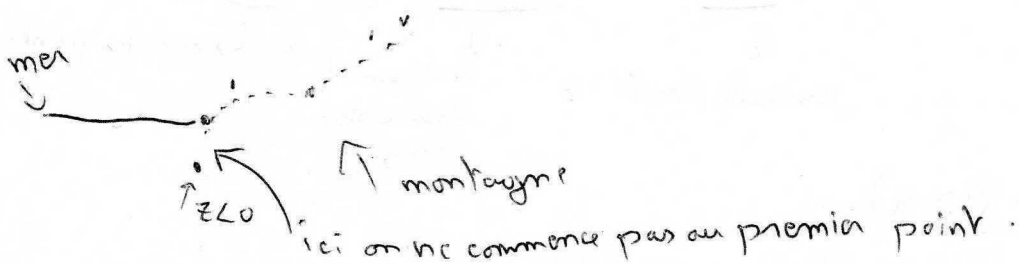 mer
montagne
z<0
ici on ne commence pas au premier point.